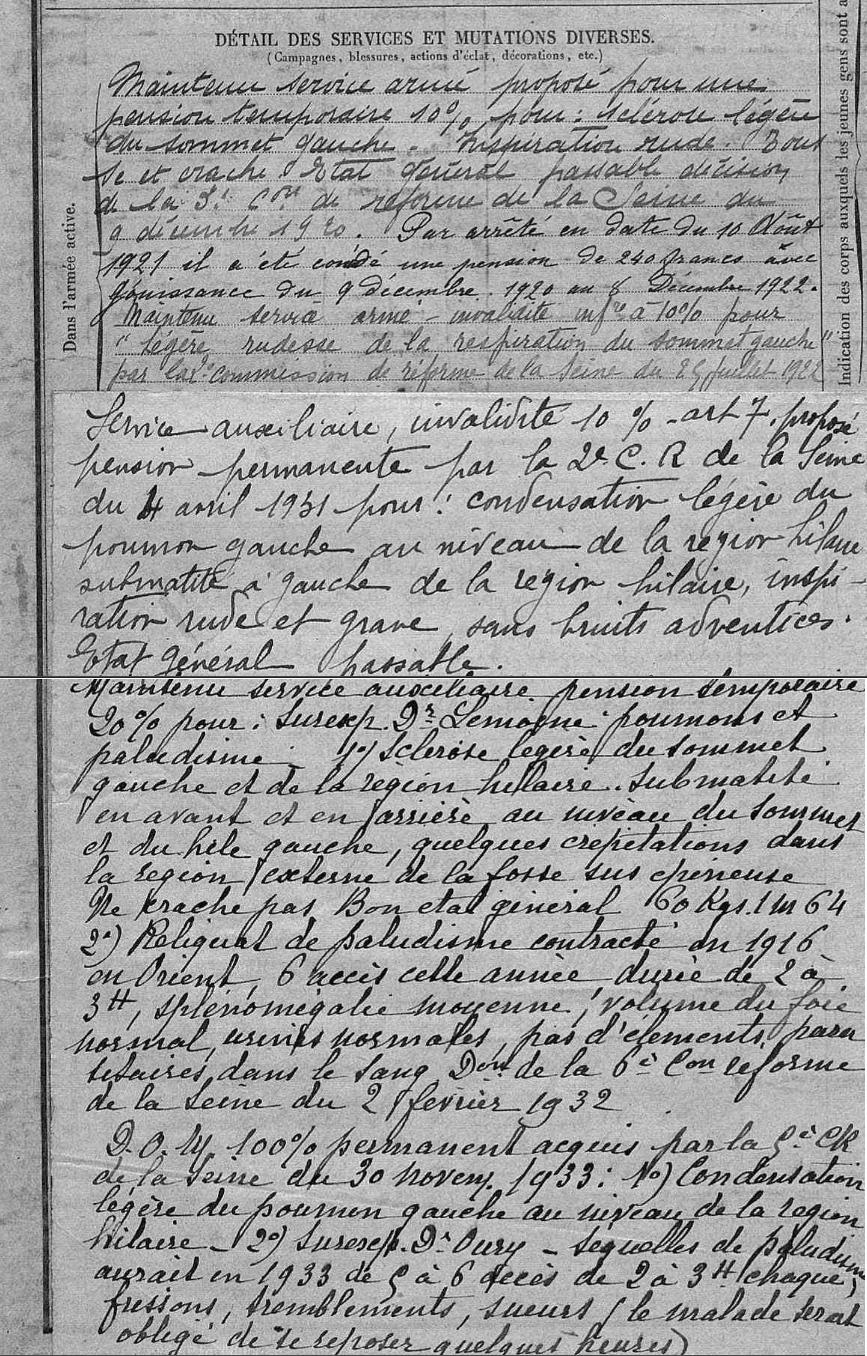 DÉTAIL DES SERVICES ET MUTATIONS DIVERSES.
(Campagnes, blessures, actions d'éclat, décorations, etc.)
Dans l'armée active.
Indication des corps auxquels les jeunes gens sont a
Maintenu service armé proposé pour une
pension temporaire 10% pour : sclérose légère
du sommet gauche. Inspiration rude. Tous
se et crache Etat général passable décision
de la Con de réforme de la Seine du
9 décembre 1920. Par arrêté en date du 10 Août
1921 il a été condé une pension de 240 francs avec
jouissance du 9 décembre 1920 au 8 Décembre 1922.
Maintenu service armé - invalidité infre à 10% pour
" légère rudesse de la respiration du sommet gauche "
par la commission de réforme de la Seine du juillet 1922
Service auxiliaire, invalidité 10 % - art 7. proposé
pension permanente par la 2e C. R de la Seine
du 4 avril 1931 pour : condensation légère du
poumon gauche au niveau de la region hilaire
submatité à gauche de la region hilaire, inspi-
ration rude et grave, sans bruits adventices.
Etat général passable.
Maintenu service auxiliaire pension temporaire
20% pour : Surexp. Dr Lemogne poumons et
paludisme - 1°) Sclérose légère du sommet
gauche et de la région hilaire. Submatité
en avant et en arrière au niveau du sommet
et du hile gauche, quelques crepitations dans
la region externe de la fosse sus epineuse
Ne crache pas Bon etat général 60 Kgs. 1 m 64
2°) Reliquat de paludisme contracté en 1916
en Orient, 6 accès cette année, durée de 2 à
3H, splénomégalie moyenne, volume du foie
normal, urines normales, pas d'élements para
sitaires, dans le sang Don de la 6e Con reforme
de la Seine du 2 fevrier 1932
D. O. M. 100% permanent acquis par la CR
de la Seine du 30 novem. 1933 : 1°) Condensation
légère du poumon gauche au niveau de la region
hilaire - 2°) Surexp. Dr Oury - Séquelles de paludisme
aurait en 1933 de 5 à 6 accès de 2 à 3H chaque,
frissons, tremblements, sueurs (le malade serait
obligé de se reposer quelques heures)